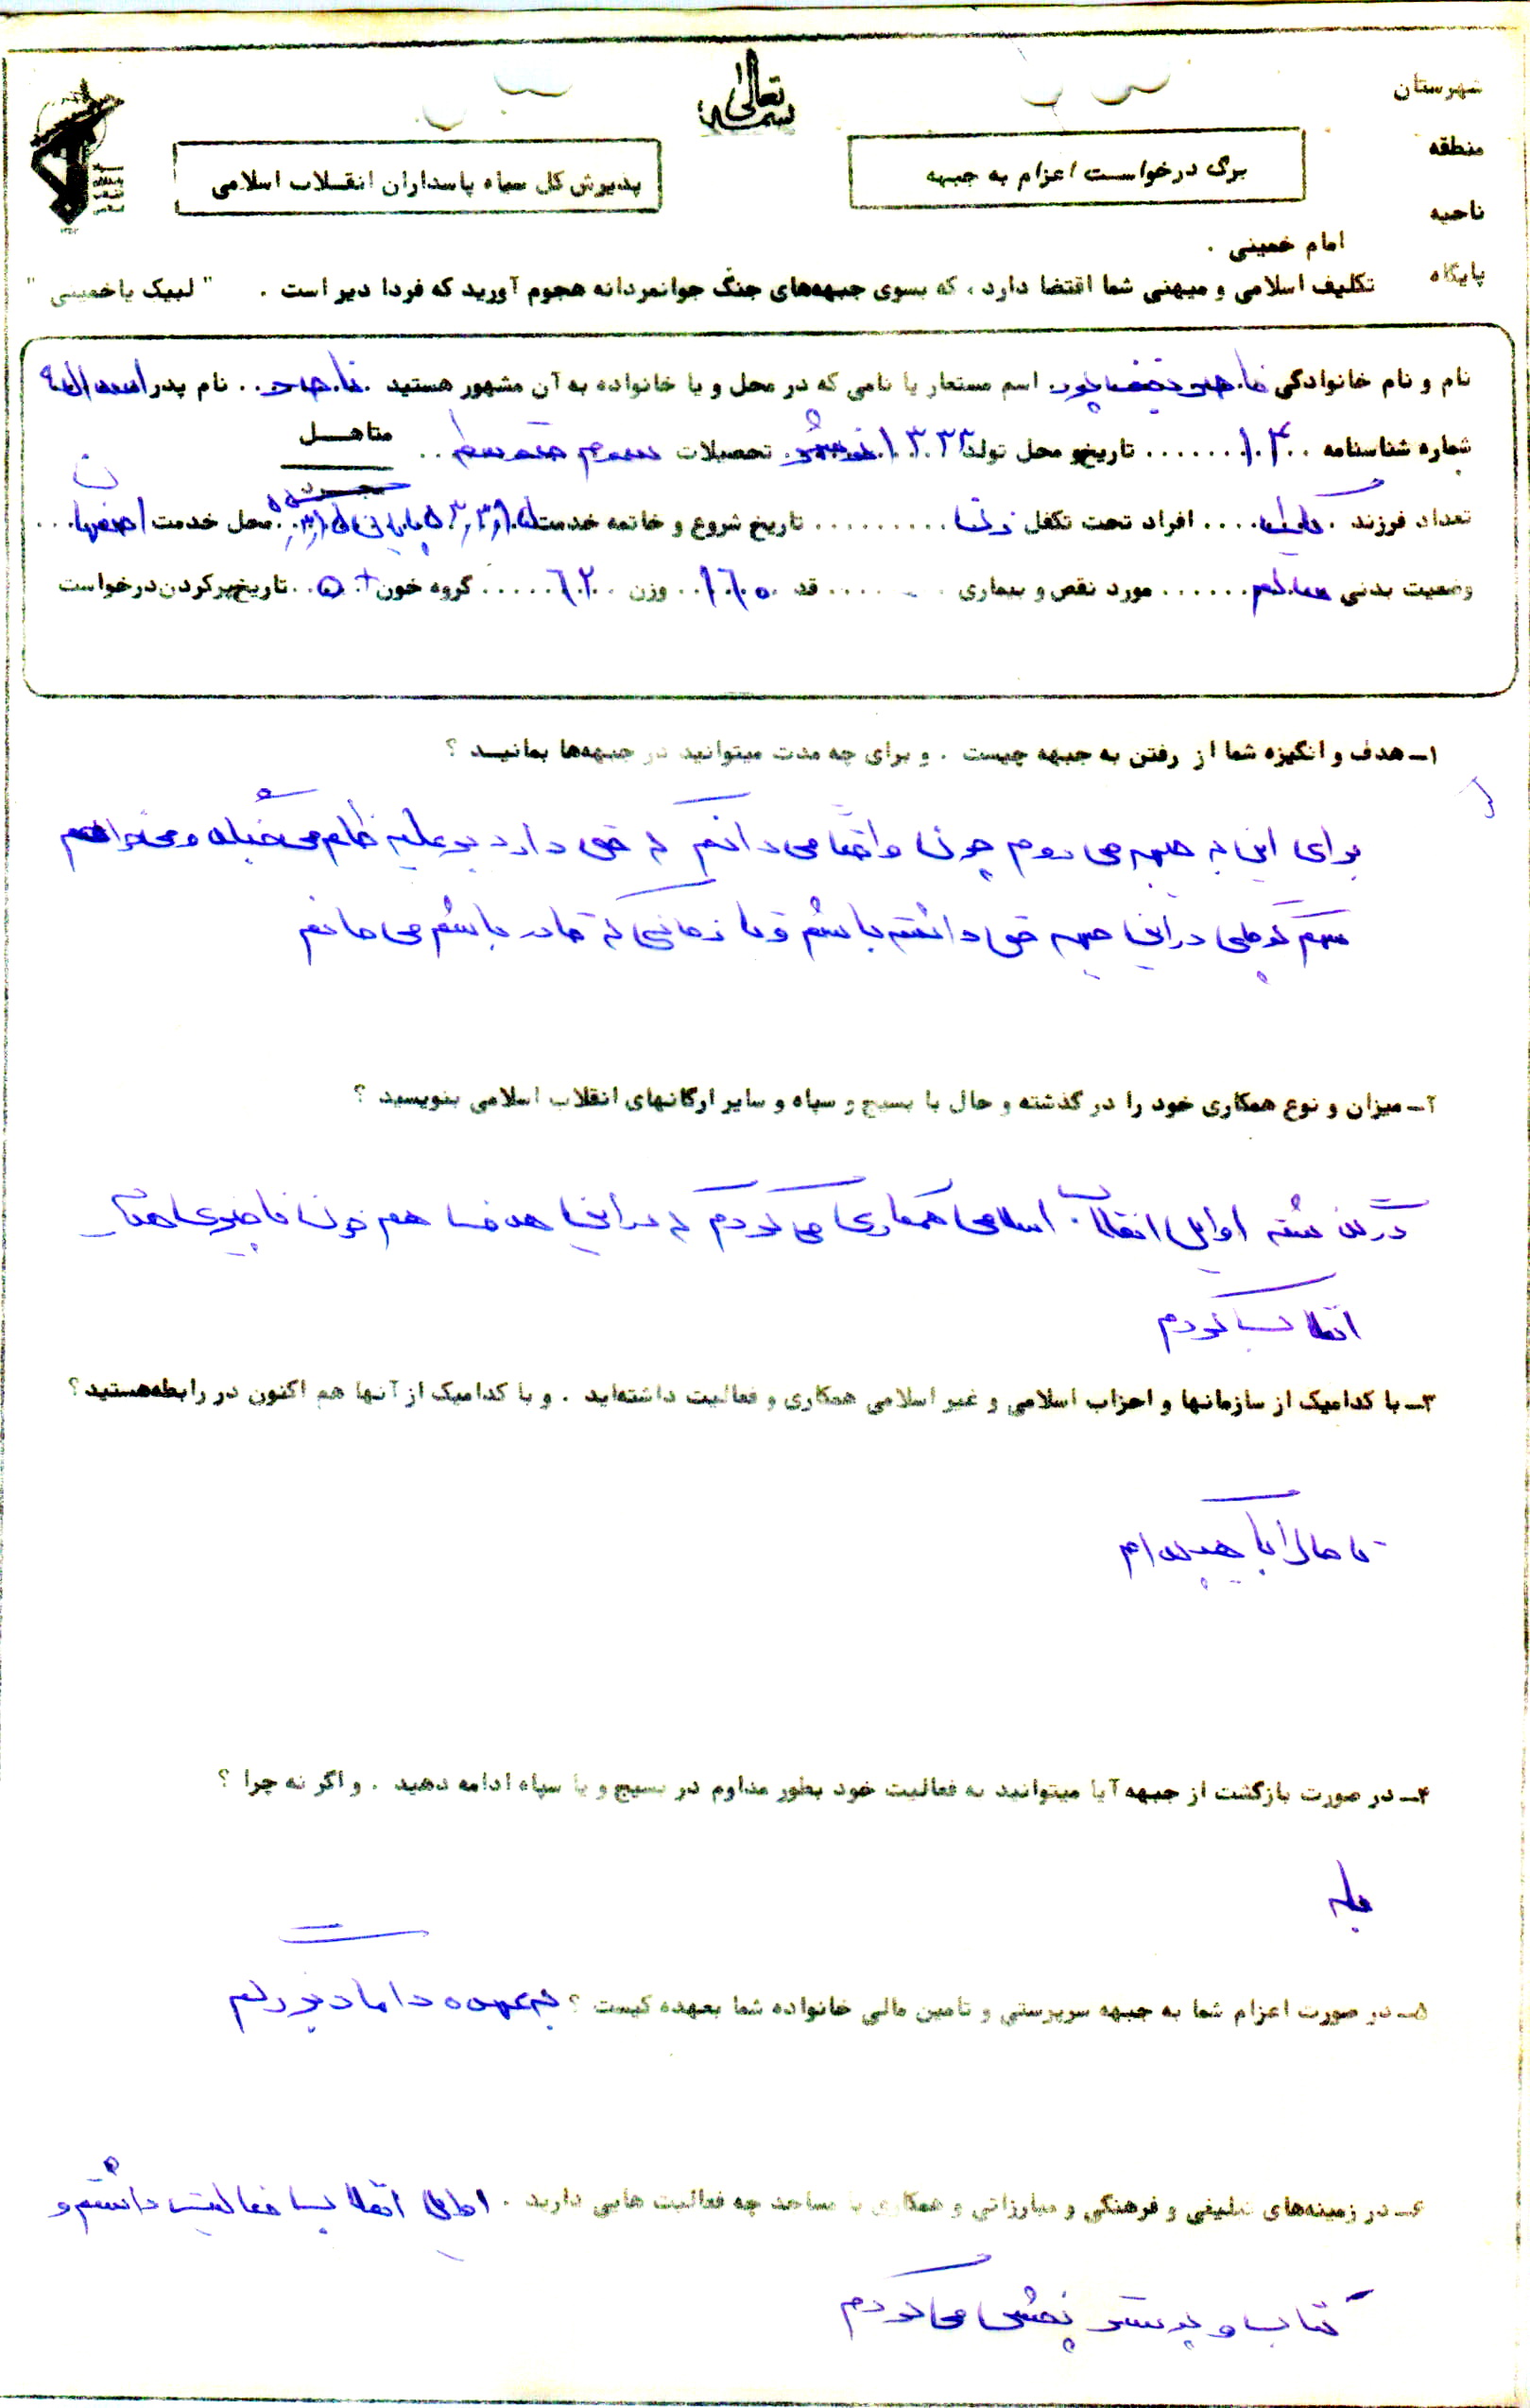 بسمه تعالی
شهرستان
منطقه
ناحیه
پایگاه
برگ درخواست اعزام به جبهه
پذیرش کل سپاه پاسداران انقلاب اسلامی
امام خمینی .
تکلیف اسلامی و میهنی شما اقتضا دارد ، که بسوی جبهه‌های جنگ جوانمردانه هجوم آورید که فردا دیر است . " لبیک یا خمینی "
نام و نام خانوادگی ناصر اسم مستعار یا نامی که در محل و یا خانواده به آن مشهور هستید ناصر نام پدر اسداله
شماره شناسنامه ۱۰۴ تاریخ و محل تولد ۱۳۳۳ تحصیلات سوم متوسطه متاهل مجرد
تعداد فرزند افراد تحت تکفل تاریخ شروع و خاتمه خدمت محل خدمت اصفهان
وضعیت بدنی سالم مورد نقص و بیماری - قد وزن ۶۲ گروه خون تاریخ پر کردن درخواست
۱ـ هدف و انگیزه شما از رفتن به جبهه چیست . و برای چه مدت میتوانید در جبهه‌ها بمانید ؟
برای این به جبهه می روم چون واقعاً می دانم که حق دارد بر علیه ظلم می جنگد و می خواهم
سهم کوچکی در این جبهه حق داشته باشم و تا زمانی که قادر باشم می مانم
۲ـ میزان و نوع همکاری خود را در گذشته و حال با بسیج و سپاه و سایر ارگانهای انقلاب اسلامی بنویسید ؟
در گذشته اوایل انقلاب اسلامی همکاری می کردم که در این هدف هم خون ناچیزی اهدای
انقلاب کردم
۳ـ با کدامیک از سازمانها و احزاب اسلامی و غیر اسلامی همکاری و فعالیت داشته‌اید . و با کدامیک از آنها هم اکنون در رابطه هستید ؟
تا حالا با هیچکدام
۴ـ در صورت بازگشت از جبهه آیا میتوانید به فعالیت خود بطور مداوم در بسیج و یا سپاه ادامه دهید . و اگر نه چرا ؟
بله
۵ـ در صورت اعزام شما به جبهه سرپرستی و تامین مالی خانواده شما بعهده کیست ؟ به عهده داماد بزرگم
۶ـ در زمینه‌های تبلیغی و فرهنگی و مبارزاتی و همکاری با مساجد چه فعالیت هایی دارید . اوایل انقلاب فعالیت داشتم و
کتاب و پوستر پخش می کردم